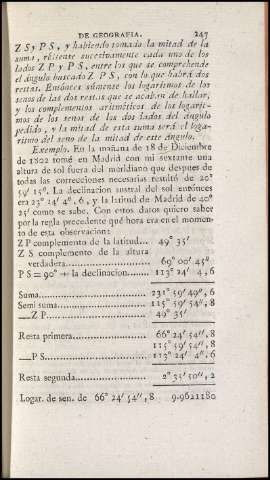 DE GEOGRAFIA. 247
Z S y P S, y habiendo tomado la mitad de la
suma, réstense sucesivamente cada uno de los
lados Z P y P S, entre los que se comprehende
el ángulo buscado Z P S, con lo que habrá dos
restas. Entónces súmense los logaritmos de los
senos de las dos restas que se acaban de hallar,
y los complementos aritméticos de los logarit-
mos de los senos de los dos lados del ángulo
pedido, y la mitad de esta suma será el loga-
ritmo del seno de la mitad de este ángulo.
Exemplo. En la mañana de 18 de Diciembre
de 1802 tomé en Madrid con mi sextante una
altura de sol fuera del meridiano que despues de
todas las correcciones necesarias resultó de 20°
59' 15". La declinacion austral del sol entónces
era 23° 24' 4", 6, y la latitud de Madrid de 40°
25' como se sabe. Con estos datos quiero saber
por la regla precedente qué hora era en el momen-
to de esta observacion:
Z P complemento de la latitud... 49° 35'
Z S complemento de la altura
verdadera..................... 69° 00' 45"
P S = 90° + la declinacion....... 113° 24' 4, 6
Suma............................. 231° 59' 49", 6
Semi suma........................ 115° 59' 54", 8
—Z P............................ 49° 35'
Resta primera.................... 66° 24' 54", 8
115° 59' 54", 8
—P S............................ 113° 24' 4", 6
Resta segunda.................... 2° 35' 50", 2
Logar. de sen. de 66° 24' 54", 8 9.9621180